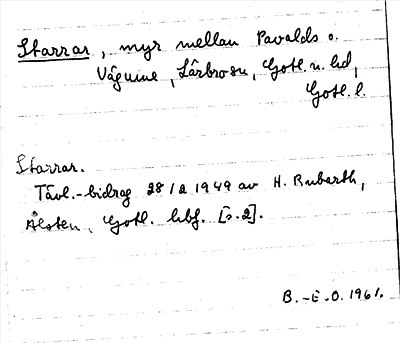 Starrar, myr mellan Pavalds o.
Vägume, Lärbro sn, Gotl. n. hd,
Gotl. l.
Starrar.
Tävl.-bidrag 28/2 1949 av H. Ruberth,
Alsten, Gotl. hbf. [s. 2].
B.-E.O. 1961.